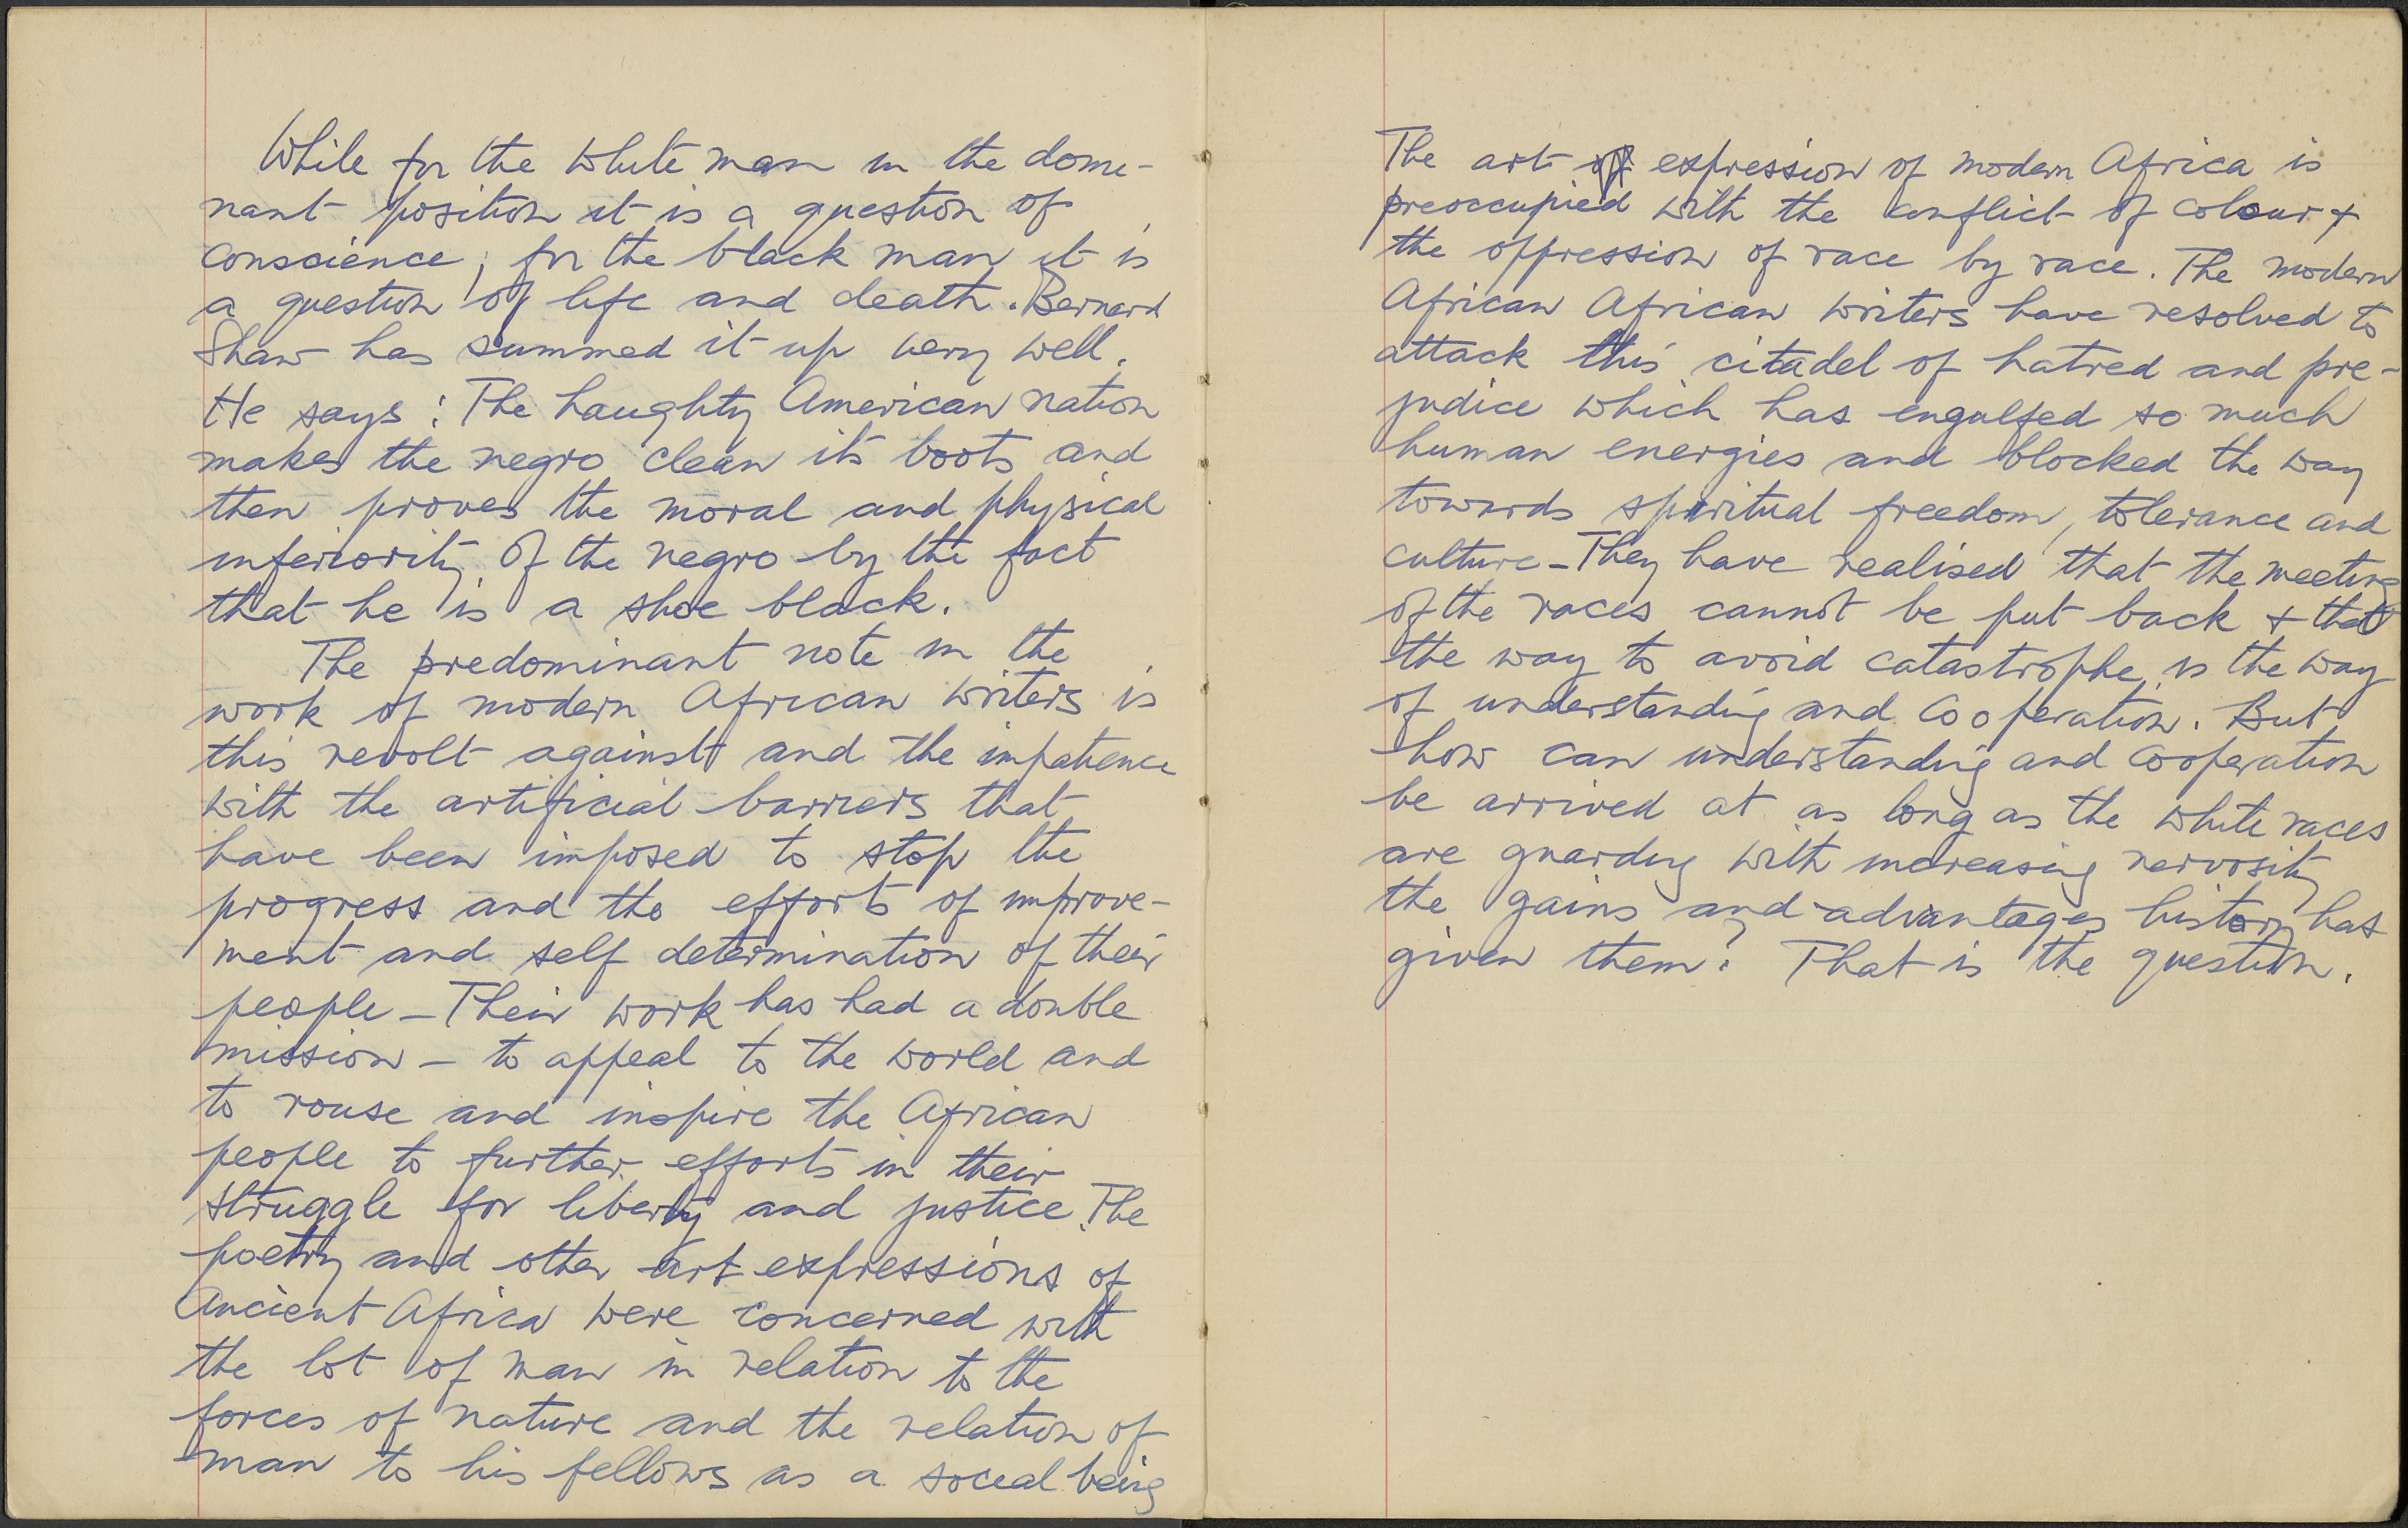 While for the white man in the domi-
nant position it is a question of
conscience, for the black man it is
a question of life and death. Bernard
Shaw has summed it up very well.
He says: The haughty American nation
makes the negro clean its boots and
then proves the moral and physical
inferiority of the negro by the fact
that he is a shoe black.
The predominant note in the
work of modern African writers is
this revolt against and the impatience
with the artificial barriers that
have been imposed to stop the
progress and the efforts of improve-
ment and self determination of their
people - Their work has had a double
mission - to appeal to the world and
to rouse and inspire the African
people to further efforts in their
struggle for liberty and justice. The
poetry and other art expressions of
Ancient Africa were concerned with
the lot of man in relation to the
forces of nature and the relation of
man to his fellows as a social being
The art of expression of modern Africa is
preoccupied with the conflict of colour +
the oppression of race by race. The modern
African African writers have resolved to
attack this citadel of hatred and pre-
judice which has engulfed so much
human energies and blocked the way
towards spiritual freedom, tolerance and
culture - They have realised that the meeting
of the races cannot be put back + that
the way to avoid catastrophe is the way
of understanding and Cooperation. But
how can understanding and cooperation
be arrived at as long as the white races
are guarding with increasing nervosity
the gains and advantages history has
given them? That is the question.